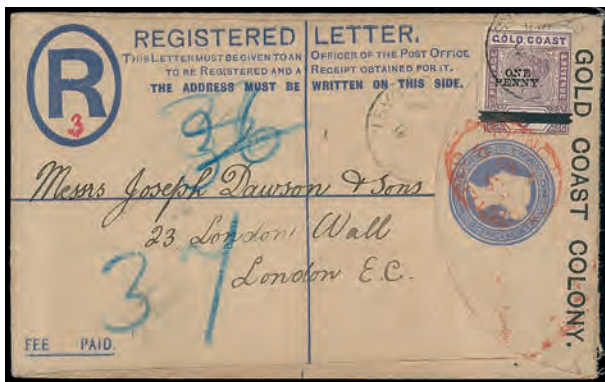 REGISTERED LETTER.
THIS LETTER MUST BE GIVEN TO AN OFFICER OF THE POST OFFICE
TO BE REGISTERED AND A RECEIPT OBTAINED FOR IT.
THE ADDRESS MUST BE WRITTEN ON THIS SIDE.
R
3
GOLD COAST
ONE
PENNY.
GOLD COAST COLONY.
Messrs Joseph Dawson & Sons
23 London Wall
London E.C.
37
FEE PAID.